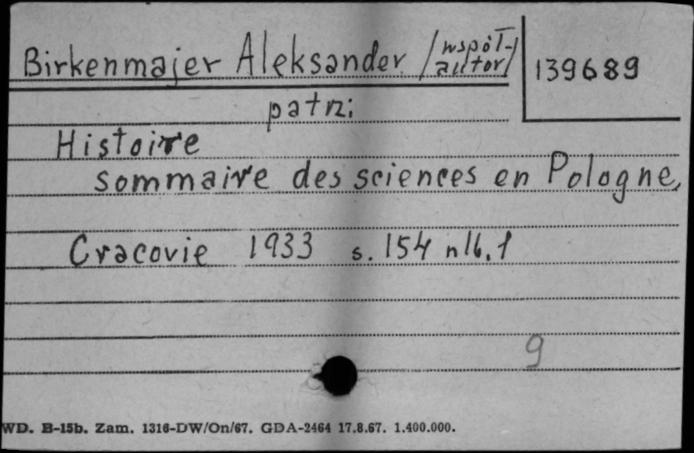 Birkenmajer Aleksander /współ-
autor/
139689
patrz:
Histoire
sommaire des sciences en Pologne,
Cracovie 1933 s. 154 nlb. 1
9
WD. B-15b. Zam. 1316-DW/On/67. GDA-2464 17.8.67. 1.400.000.